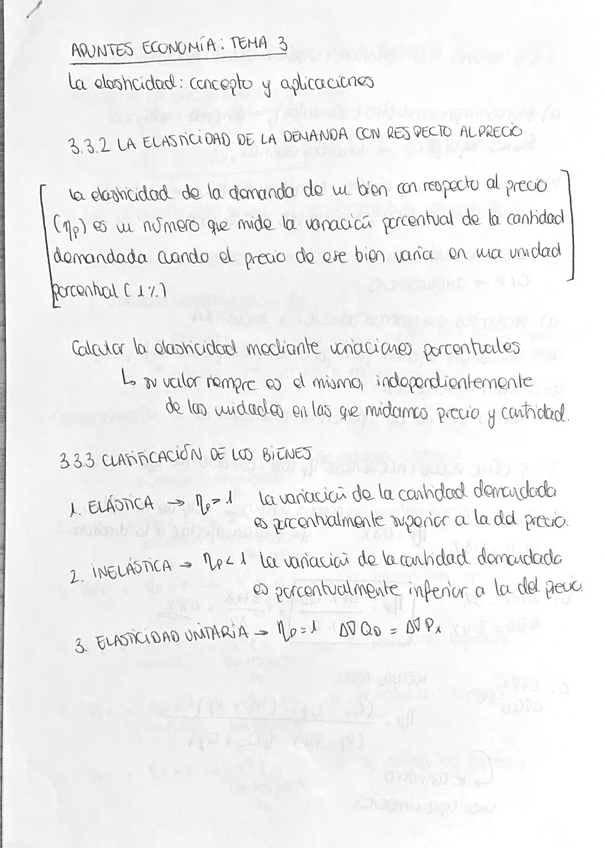 APUNTES ECONOMÍA: TEMA 3
La elasticidad: concepto y aplicaciones
3.3.2 LA ELASTICIDAD DE LA DEMANDA CON RESPECTO AL PRECIO
la elasticidad de la demanda de un bien con respecto al precio
(ηp) es un número que mide la variación porcentual de la cantidad
demandada cuando el precio de ese bien varía en una unidad
porcentual (1%)
Calcular la elasticidad mediante variaciones porcentuales
↳ su valor siempre es el mismo, independientemente
de las unidades en las que midamos precio y cantidad.
3.3.3 CLASIFICACIÓN DE LOS BIENES
1. ELÁSTICA → ηp > 1 la variación de la cantidad demandada
es porcentualmente superior a la del precio.
2. INELÁSTICA → ηp < 1 la variación de la cantidad demandada
es porcentualmente inferior a la del precio.
3. ELASTICIDAD UNITARIA → ηp = 1 Δ∇QD = Δ∇Px